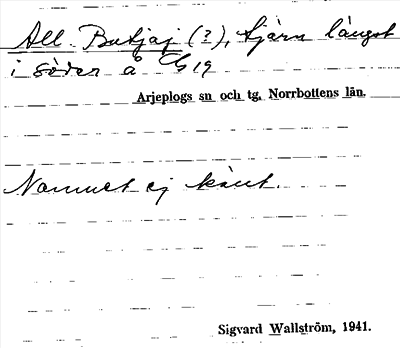 All. Butjaj (?), tjärn längst
i söder å G 19
Arjeplogs sn och tg, Norrbottens län.
Namnet ej känt.
Sigvard Wallström, 1941.